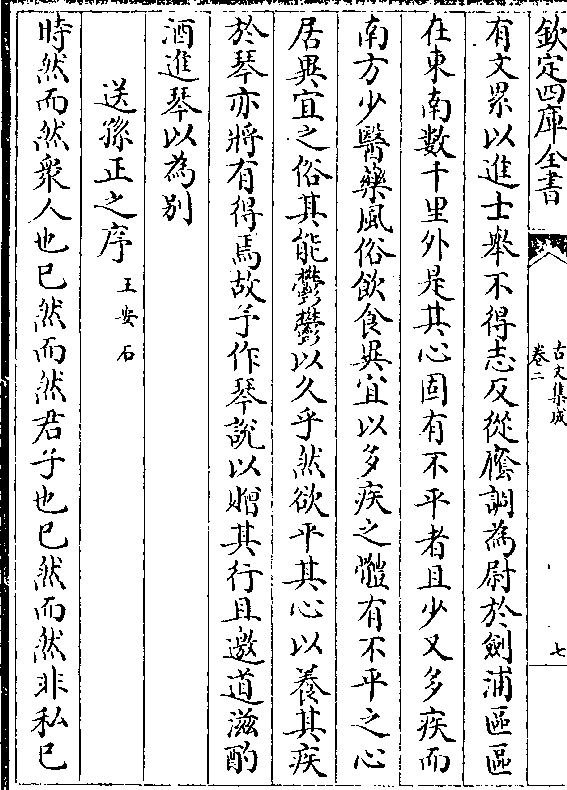 欽定四庫全書
古文集成
卷二
七
有文累以進士舉不得志反從廕調為尉於劍浦區區
在東南數千里外是其心固有不平者且少又多疾而
南方少醫藥風俗飲食異宜以多疾之體有不平之心
居異宜之俗其能鬱鬱以久乎然欲平其心以養其疾
於琴亦將有得焉故予作琴說以贈其行且邀道滋酌
酒進琴以為別
送孫正之序
王安石
時然而然衆人也已然而然君子也已然而然非私已